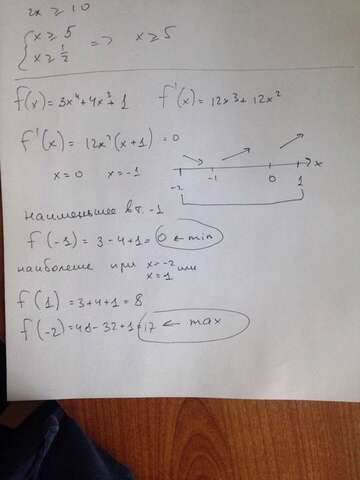 2x ≥ 10
{ x ≥ 5
x ≥ 1/2 => x ≥ 5
f(x) = 3x⁴+4x³+1 f'(x) = 12x³+12x²
f'(x) = 12x²(x+1) = 0
x=0 x=-1
-2 -1 0 1 x
наименьшее в т. -1
f(-1) = 3-4+1 = 0 ← min
наиболее при x=-2 или
x=1
f(1) = 3+4+1 = 8
f(-2) = 48-32+1 = 17 ← max